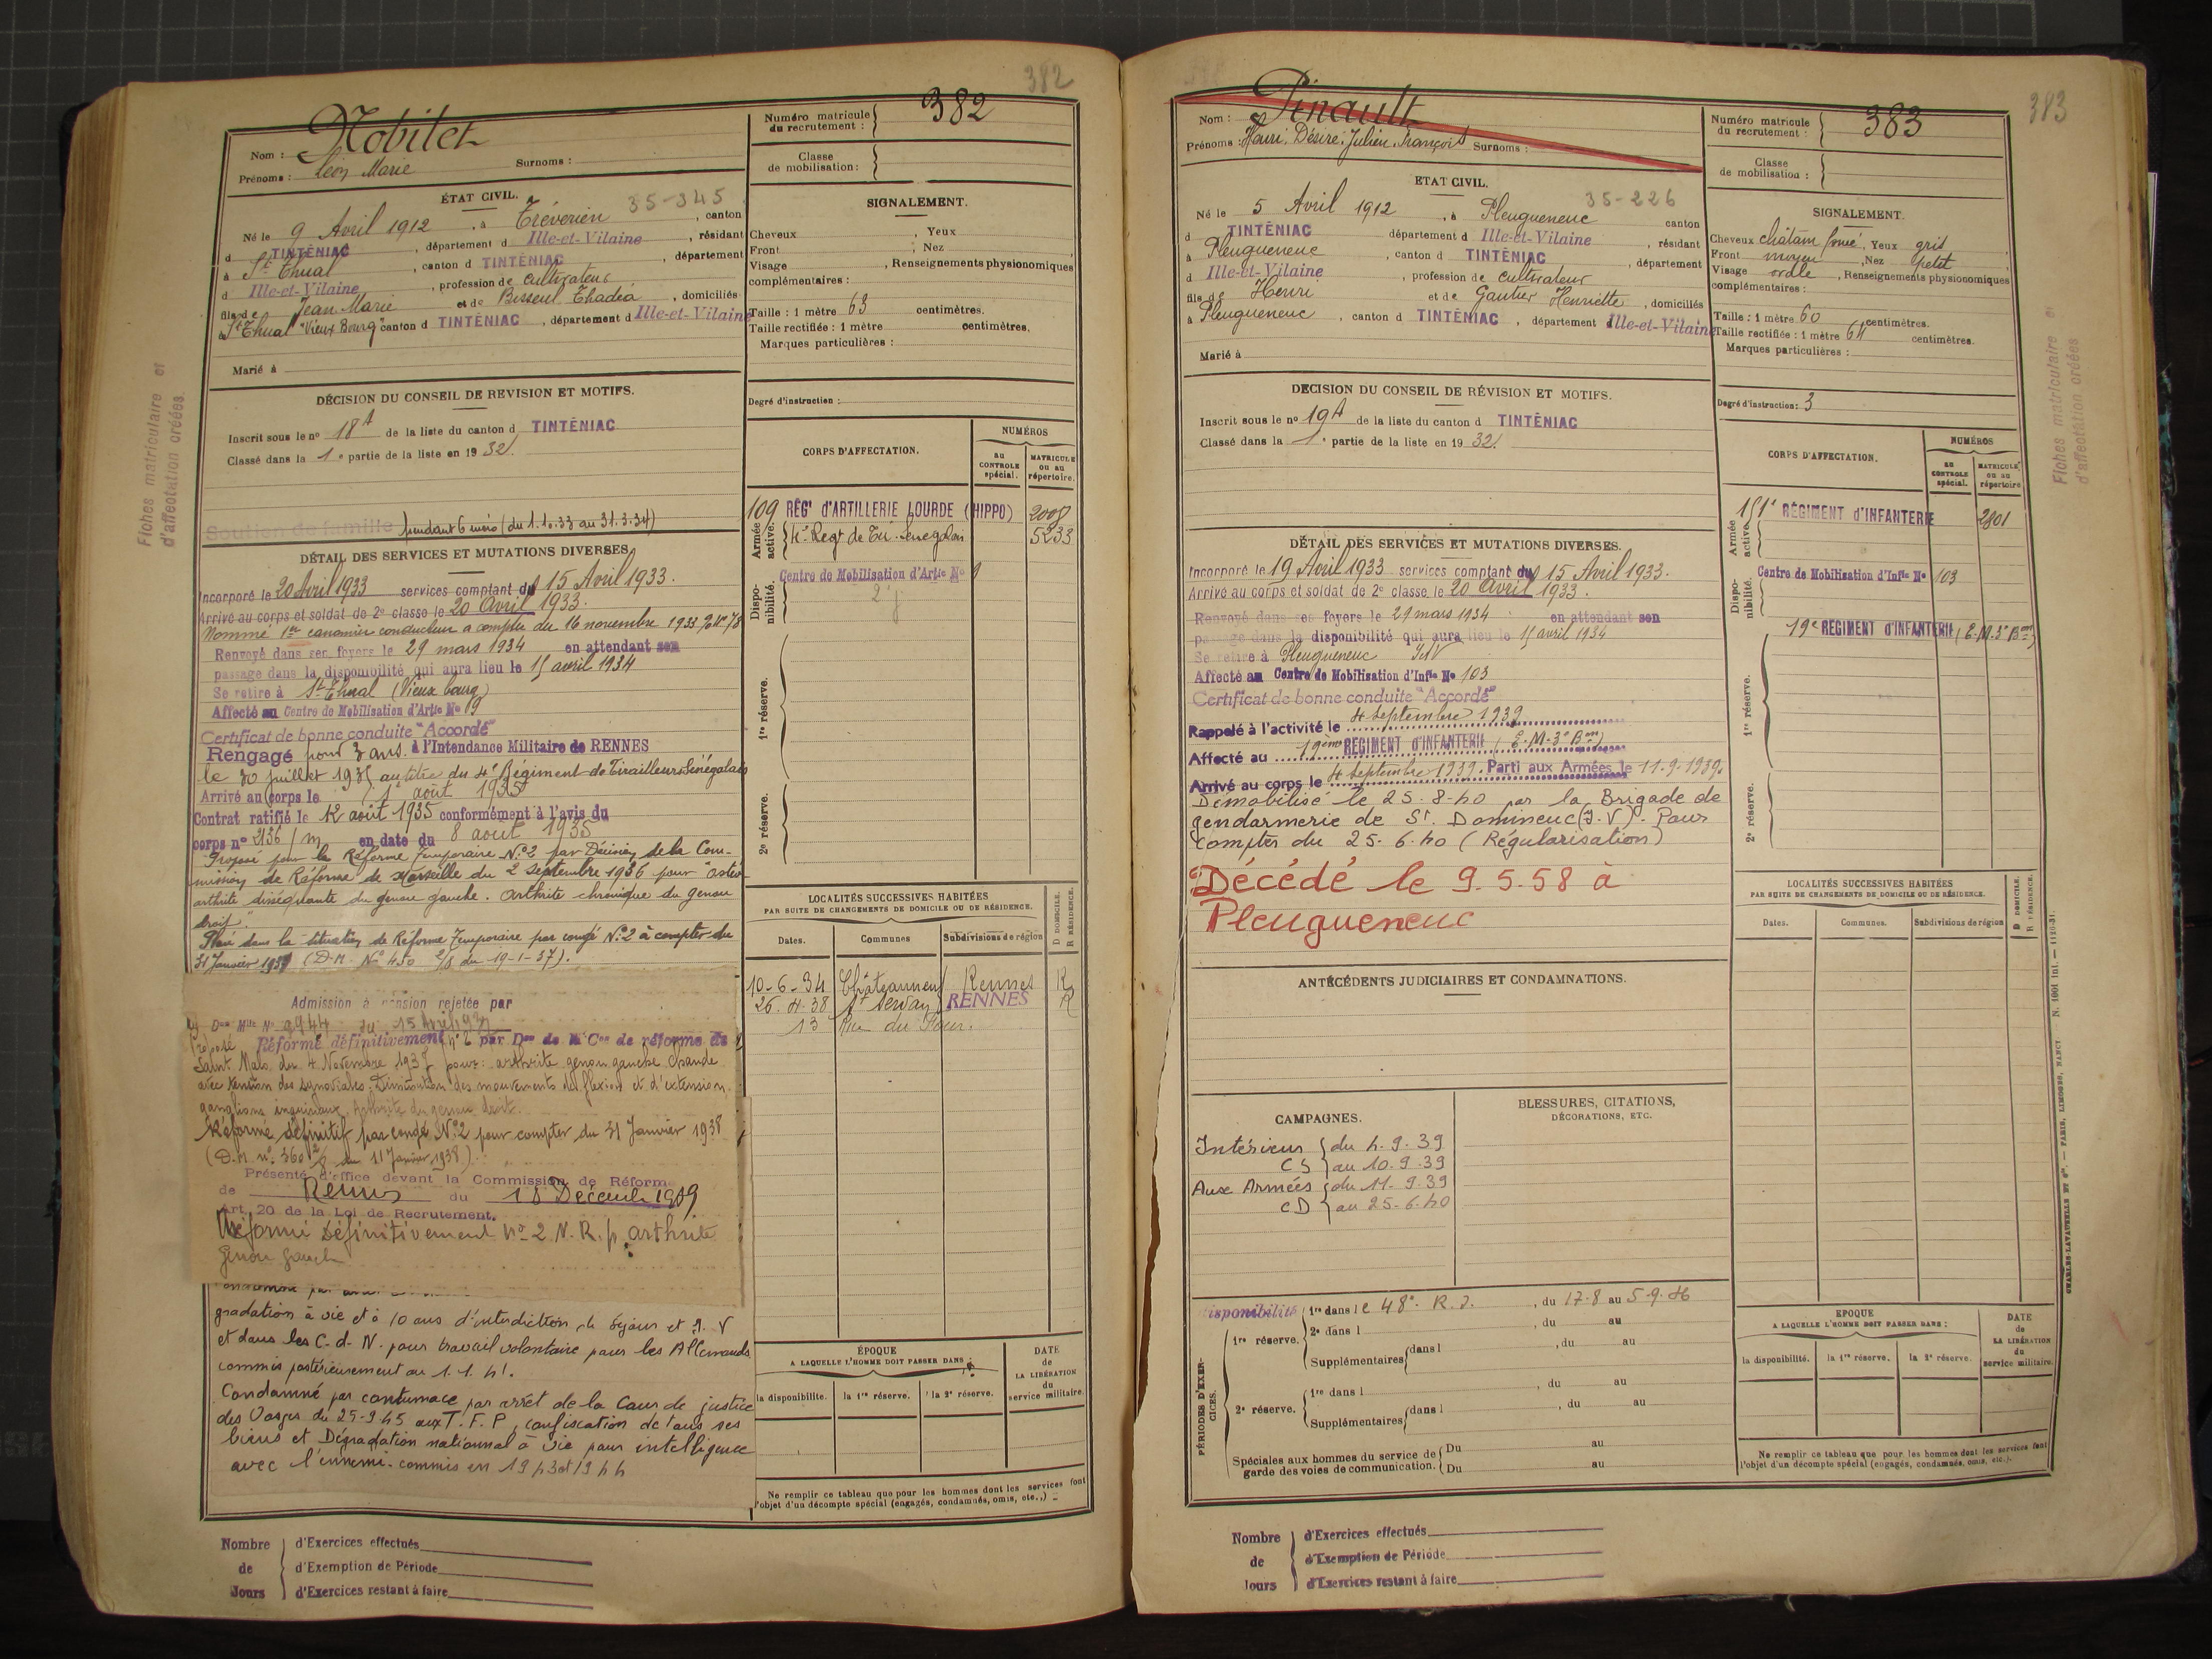 382
Nom : Nobilet
Prénoms : Léon Marie Surnoms :
Numéro matricule du recrutement : 382
Classe de mobilisation :
ÉTAT CIVIL.
35-345
Né le 9 Avril 1912, à Trévérien, canton
d TINTÉNIAC, département d Ille-et-Vilaine, résidant
à St Thual, canton d TINTÉNIAC, département
d Ille-et-Vilaine, profession de cultivateur
fils de Jean Marie et de Bisseul Thadéa, domiciliés
à St Thual "Vieux Bourg" canton d TINTÉNIAC, département d Ille-et-Vilaine
Marié à
SIGNALEMENT.
Cheveux , Yeux
Front , Nez
Visage , Renseignements physionomiques
complémentaires :
Taille : 1 mètre 63 centimètres.
Taille rectifiée : 1 mètre centimètres.
Marques particulières :
Degré d'instruction :
DÉCISION DU CONSEIL DE REVISION ET MOTIFS.
Inscrit sous le nº 18A de la liste du canton d TINTÉNIAC
Classé dans la 1e partie de la liste en 1932.
Soutien de famille pendant 6 mois (du 1.10.33 au 31.3.34)
DÉTAIL DES SERVICES ET MUTATIONS DIVERSES
Incorporé le 20 Avril 1933 services comptant du 15 Avril 1933.
Arrivé au corps et soldat de 2e classe le 20 Avril 1933.
Nommé 1er canonnier conducteur a compter du 16 novembre 1933
Renvoyé dans ses foyers le 29 mars 1934 en attendant son
passage dans la disponibilité qui aura lieu le 15 avril 1934
Se retire à St Thual (Vieux bourg)
Affecté au Centre de Mobilisation d'Artie No 19
Certificat de bonne conduite "Accordé"
Rengagé pour 3 ans à l'Intendance Militaire de RENNES
le 30 juillet 1935 au titre du 4e Régiment de Tirailleurs Sénégalais
Arrivé au corps le 1e août 1935
Contrat ratifié le 12 août 1935 conformément à l'avis du
corps nº 2136/m en date du 8 août 1935
Proposé pour la Réforme Temporaire Nº2 par Décision de la Com-
mission de Réforme de Marseille du 2 Septembre 1936 pour "ostéo
arthrite disséquante du genou gauche. arthrite chronique du genou
droit".
Placé dans la situation de Réforme Temporaire par congé Nº2 à compter du
31 Janvier 1937 (D.M. Nº 450 2/8 du 19-1-37).
Admission à pension rejetée par
Don Mlle Nº 9944 du 15 Avril 1937
Proposé Réformé définitivement nº 2 par Don de la Con de réforme de
Saint Malo du 4 Novembre 1937 pour : arthrite genou gauche chaude
avec tension des synoviales. Diminution des mouvements de flexion et d'extension.
ganglions inguinaux. Arthrite du genou droit.
Réforme définitif par congé Nº2 pour compter du 31 Janvier 1938
(D.M. nº 360 2/8 du 11 Janvier 1938)
Présenté d'office devant la Commission de Réforme
de Rennes du 18 Décembre 1939
Art. 20 de la Loi de Recrutement.
Réformé Définitivement Nº 2 N.R. p. arthrite
genou gauche
gradation à vie et à 10 ans d'interdiction de séjour et I. V
et dans les C. d. N. pour travail volontaire pour les Allemands
commis postérieurement au 1.1.41.
Condamné par contumace par arrêt de la Cour de justice
des Vosges du 25-9-45 aux T.F.P, confiscation de tous ses
biens et Dégradation nationnal à vie pour intelligence
avec l'ennemi. commis en 1943 et 1944
CORPS D'AFFECTATION.
NUMÉROS
au CONTROLE spécial.
MATRICULE ou au répertoire.
Armée active.
109 RÉGt D'ARTILLERIE LOURDE (HIPPO) 2009
4e Regt de Tir. Senegalais 5233
Disponibilité.
Centre de Mobilisation d'Artie No 9
1re réserve.
2e réserve.
LOCALITÉS SUCCESSIVES HABITÉES
PAR SUITE DE CHANGEMENTS DE DOMICILE OU DE RÉSIDENCE.
D DOMICILE. R RÉSIDENCE.
Dates. Communes Subdivisions de région
10-6-34 Châteauneuf Rennes R
26.4.38 St Servan RENNES R
13 Rue du
ÉPOQUE
A LAQUELLE L'HOMME DOIT PASSER DANS :
la disponibilité. la 1re réserve. la 2e réserve.
DATE de LA LIBÉRATION du service militaire.
Ne remplir ce tableau que pour les hommes dont les services font
l'objet d'un décompte spécial (engagés, condamnés, omis, etc.,)
Nombre de Jours
d'Exercices effectués
d'Exemption de Période
d'Exercices restant à faire
Fiches matriculaire et
d'affectation créées.
383
Nom : Pinault
Prénoms : Henri, Désiré, Julien, François Surnoms :
Numéro matricule du recrutement : 383
Classe de mobilisation :
ETAT CIVIL.
35-226
Né le 5 Avril 1912, à Pleugueneuc canton
d TINTÉNIAC département d Ille-et-Vilaine, résidant
à Pleugueneuc, canton d TINTÉNIAC, département
d Ille-et-Vilaine, profession de cultivateur
fils de Henri et de Gautier Henriette, domiciliés
à Pleugueneuc, canton d TINTÉNIAC, département d Ille-et-Vilaine
Marié à
SIGNALEMENT.
Cheveux châtain foncé, Yeux gris
Front moyen, Nez petit
Visage ovale, Renseignements physionomiques
complémentaires :
Taille : 1 mètre 60 centimètres.
Taille rectifiée : 1 mètre 64 centimètres.
Marques particulières :
Degré d'instruction : 3
DECISION DU CONSEIL DE RÉVISION ET MOTIFS.
Inscrit sous le nº 19A de la liste du canton d TINTÉNIAC
Classé dans la 1e partie de la liste en 1932.
DÉTAIL DES SERVICES ET MUTATIONS DIVERSES.
Incorporé le 19 Avril 1933 services comptant du 15 Avril 1933.
Arrivé au corps et soldat de 2e classe le 20 Avril 1933.
Renvoyé dans ses foyers le 29 mars 1934 en attendant son
passage dans la disponibilité qui aura lieu le 15 avril 1934
Se retire à Pleugueneuc I et V
Affecté au Centre de Mobilisation d'Infie No 103
Certificat de bonne conduite "Accordé"
Rappelé à l'activité le 4 septembre 1939
Affecté au 19ème RÉGIMENT D'INFANTERIE (E.M. 3e Bon)
Arrivé au corps le 4 septembre 1939. Parti aux Armées le 11-9-1939.
Démobilisé le 25-8-40 par la Brigade de
gendarmerie de St. Domineuc (I.V). Pour
compter du 25-6-40 (Régularisation)
Décédé le 9.5.58 à
Pleugueneuc
ANTÉCÉDENTS JUDICIAIRES ET CONDAMNATIONS.
CAMPAGNES.
Intérieur CS du 4.9.39 au 10.9.39
Aux Armées CD du 11.9.39 au 25-6-40
BLESSURES, CITATIONS,
DÉCORATIONS, ETC.
PÉRIODES D'EXERCICES.
Disponibilité 1re dans le 48e R.I., du 17-8 au 5-9-36
1re réserve. 2e dans l , du au
Supplémentaires dans l , du au
2e réserve. 1re dans l , du au
Supplémentaires dans l , du au
Spéciales aux hommes du service de
garde des voies de communication. Du au
Du au
CORPS D'AFFECTATION.
NUMÉROS
au CONTROLE spécial.
MATRICULE ou au répertoire
Armée active.
151e RÉGIMENT D'INFANTERIE 2801
Disponibilité.
Centre de Mobilisation d'Infie No 103
19e RÉGIMENT D'INFANTERIE (E.M. 3e Bon)
1re réserve.
2e réserve.
LOCALITÉS SUCCESSIVES HABITÉES
PAR SUITE DE CHANGEMENTS DE DOMICILE OU DE RÉSIDENCE.
D DOMICILE. R RÉSIDENCE.
Dates. Communes. Subdivisions de région
EPOQUE
A LAQUELLE L'HOMME DOIT PASSER DANS :
la disponibilité. la 1re réserve. la 2e réserve.
DATE de LA LIBÉRATION du service militaire.
Ne remplir ce tableau que pour les hommes dont les services font
l'objet d'un décompte spécial (engagés, condamnés, omis, etc.).
Nombre de Jours
d'Exercices effectués
d'Exemption de Période
d'Exercices restant à faire
Fiches matriculaire et
d'affectation créées
CHARLES-LAVAUZELLE ET Cie. — PARIS, LIMOGES, NANCY. N. 1001 int. — 1120-31.